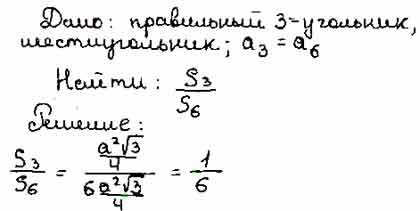 Дано: правильный 3-угольник,
шестиугольник; a₃ = a₆
Найти: S₃/S₆
Решение:
S₃/S₆ = (a²√3/4)/(6 a²√3/4) = 1/6